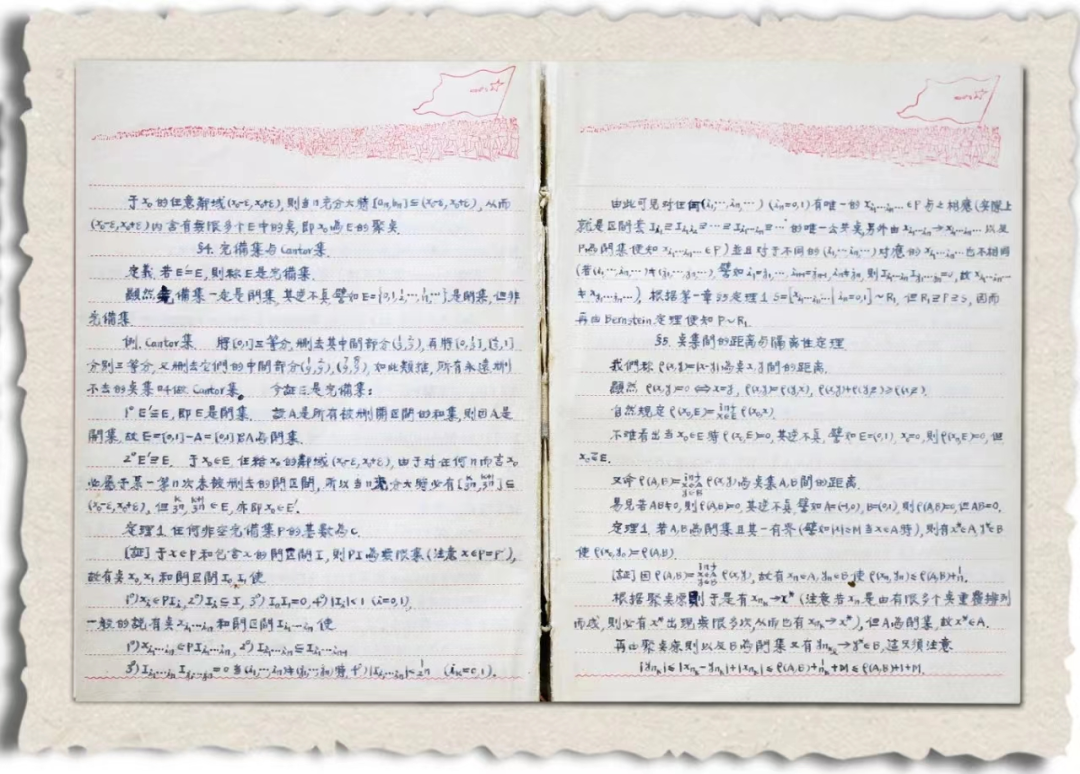 于 x₀ 的任意鄰域 (x₀-ε, x₀+ε), 则当 n 充分大時 [aₙ, bₙ] ⊆ (x₀-ε, x₀+ε), 从而
(x₀-ε, x₀+ε) 内含有無限多个 E 中的点, 即 x₀ 爲 E 的聚点.
§4. 完備集与 Cantor 集.
定義. 若 E′=E, 则称 E 是完備集.
顯然完備集一定是閉集, 其逆不真. 譬如 是閉集, 但非
完備集.
例. Cantor 集. 將 [0,1] 三等分, 刪去其中間部分 (1/3, 2/3), 再將 [0, 1/3], [2/3, 1]
分别三等分, 又刪去它們的中間部分 (1/9, 2/9), (7/9, 8/9), 如此類推, 所有永遠刪
不去的点集叫做 Cantor 集. 今証 E 是完備集:
1° E′⊆E, 即 E 是閉集. 設 A 是所有被刪開區間的和集, 则因 A 是
開集, 故 E=[0,1]-A=[0,1] 爲閉集.
2° E′⊇E. 于 x₀∈E, 任給 x₀ 的鄰域 (x₀-ε, x₀+ε), 由于对任何 n 而言 x₀
必屬于某一第 n 次未被刪去的閉區間, 所以当 n 充分大時必有 [k/3ⁿ, (k+1)/3ⁿ] ⊆
(x₀-ε, x₀+ε), 但 k/3ⁿ, (k+1)/3ⁿ ∈ E, 亦即 x₀∈E′.
定理1. 任何非空完備集 P 的基數爲 c.
[証] 于 x∈P 和包含 x 的開區間 I, 则 PI 爲無限集 (注意 x∈P=P′),
故有点 x₀, x₁ 和開區間 I₀, I₁ 使
1°) xᵢ∈PIᵢ, 2°) Iᵢ⊆I, 3°) I₀I₁=0, 4°) |Iᵢ|<1 (i=0,1).
一般的説, 有点 x_{i₁…iₙ} 和開區間 I_{i₁…iₙ} 使
1°) x_{i₁…iₙ}∈PI_{i₁…iₙ}, 2°) I_{i₁…iₙ}⊆I_{i₁…iₙ₋₁}
3°) I_{i₁…iₙ} I_{j₁…jₙ}=0 当 (i₁,…,iₙ)≠(j₁,…,jₙ) 時 4°) |I_{i₁…iₙ}|<1/2ⁿ (iₙ=0,1).
由此可見对任何 (i₁,…,iₙ,…) (iₙ=0,1) 有唯一的 x_{i₁…iₙ…}∈P 与之相應 (实際上
就是區間套 的唯一公共点. 另外由 x_{i₁…iₙ}→x_{i₁…iₙ…} 以及
P 爲閉集便知 x_{i₁…iₙ…}∈P) 並且对于不同的 (i₁,…iₙ…) 对應的 x_{i₁…iₙ…} 也不相同
(若 (i₁,…iₙ,…)≠(j₁,…jₙ,…) 譬如 i₁=j₁,…, iₙ₋₁=jₙ₋₁, iₙ≠jₙ, 则 I_{i₁…iₙ}I_{j₁…jₙ}=0, 故 x_{i₁…iₙ…}
≠x_{j₁…jₙ…}). 根据第一章 定理1 S={x_{i₁…iₙ…} | iₙ=0,1}~R₁, 但 R₁⊇P⊇S, 因而
再由 Bernstein 定理便知 P~R₁.
§5. 点集間的距離与隔離性定理.
我們称 ρ(x,y)=|x-y| 爲点 x, y 間的距離.
顯然 ρ(x,y)=0 ⟺ x=y, ρ(x,y)=ρ(y,x), ρ(x,y)+ρ(y,z)≥ρ(x,z).
自然規定 ρ(x₀,E)=inf_{x∈E} ρ(x₀,x).
不难看出当 x₀∈E 時 ρ(x₀,E)=0, 其逆不真, 譬如 E=(0,1), x₀=0, 则 ρ(x₀,E)=0, 但
x₀∉E.
又命 ρ(A,B)=inf_{x∈A, y∈B} ρ(x,y) 爲点集 A, B 間的距離.
易見若 AB≠0, 则 ρ(A,B)=0, 其逆不真, 譬如 A=(-1,0), B=(0,1), 则 ρ(A,B)=0, 但 AB=0.
定理1. 若 A, B 爲閉集且其一有界 (譬如 |x|≤M 当 x∈A 時), 则有 x*∈A, y*∈B
使 ρ(x*,y*)=ρ(A,B).
[証] 因 ρ(A,B)=inf_{x∈A, y∈B} ρ(x,y), 故有 xₙ∈A, yₙ∈B 使 ρ(xₙ,yₙ)≤ρ(A,B)+1/n.
根据聚点原則于是有 x_{nₖ}→x* (注意若 xₙ 是由有限多个点重覆排列
而成, 则必有 x* 出現無限多次, 从而也有 x_{nₖ}→x*), 但 A 爲閉集, 故 x*∈A.
再由聚点原则以及 B 爲閉集又有 →y*∈B, 這只須注意
|y_{nₖ}|≤|x_{nₖ}-y_{nₖ}|+|x_{nₖ}|≤ρ(A,B)+1/nₖ+M≤ρ(A,B)+1+M.